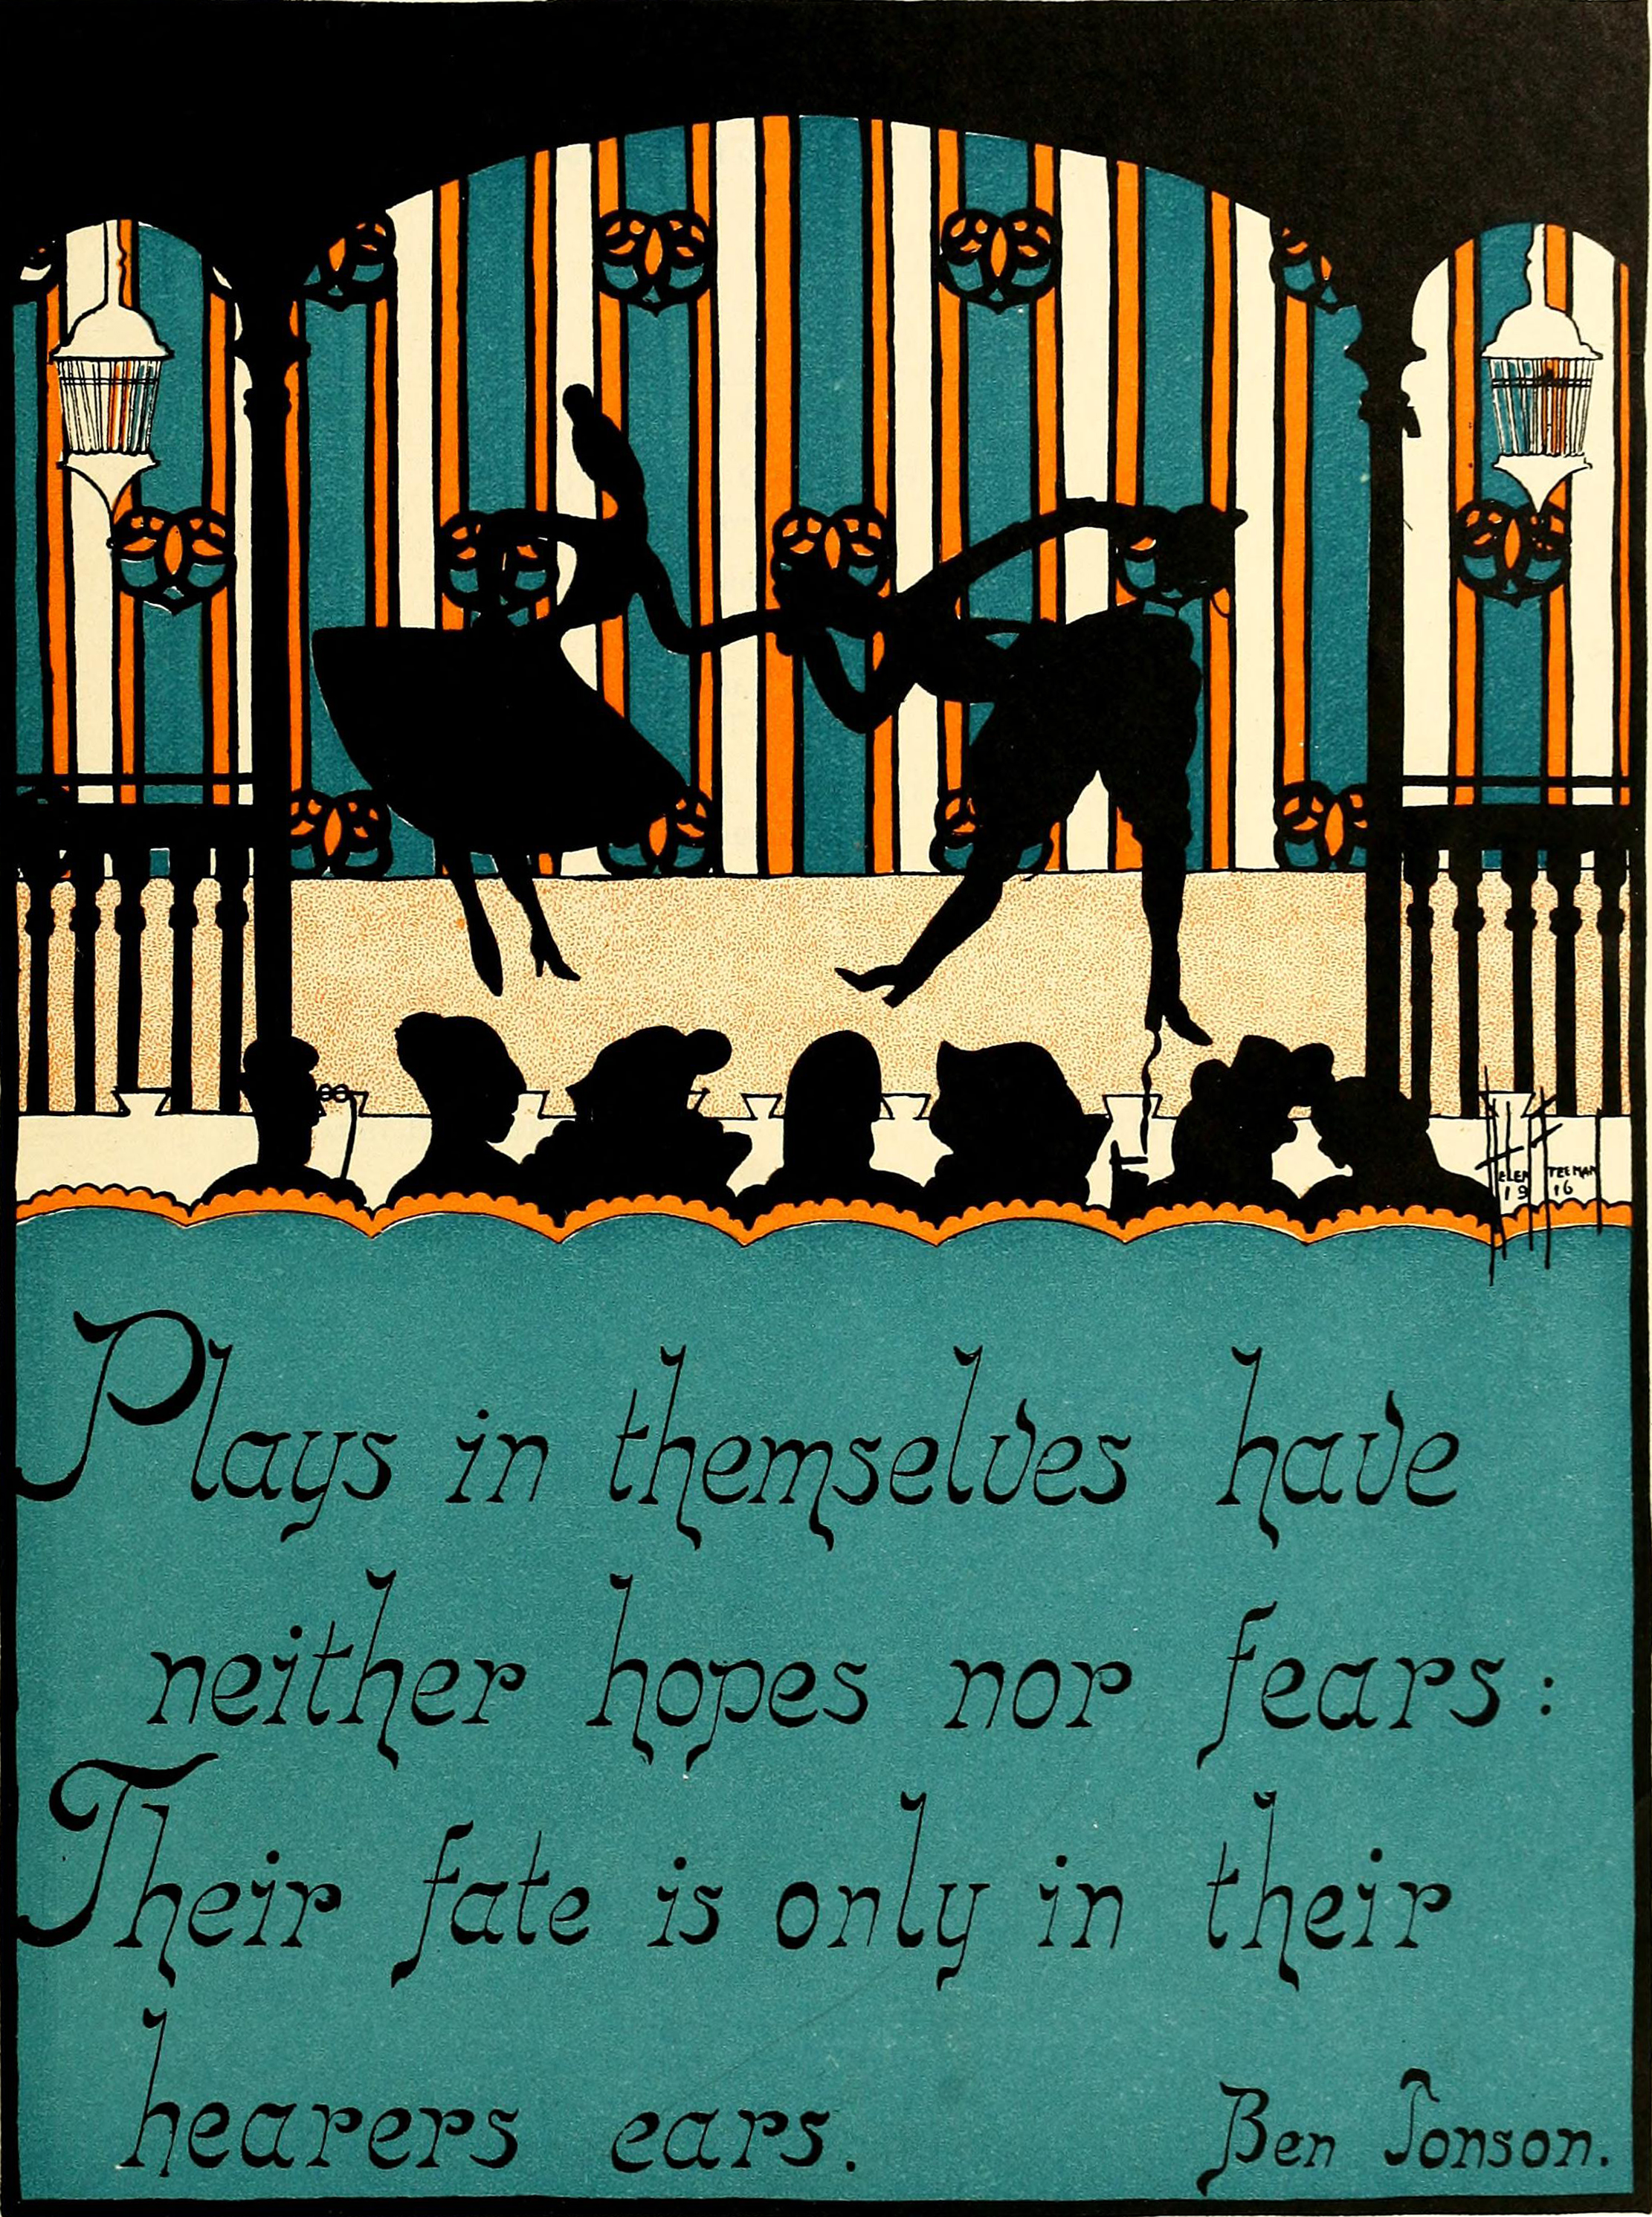 HELEN FREEMAN
1916
Plays in themselves have
neither hopes nor fears:
Their fate is only in their
hearers ears.
Ben Jonson.